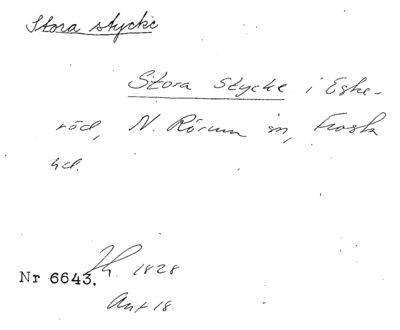 Stora stycke
Stora Stycke i Eske-
röd, N. Rörum sn, Frosta
hd.
Nr 6643. Jh. 1828
Ant 18.